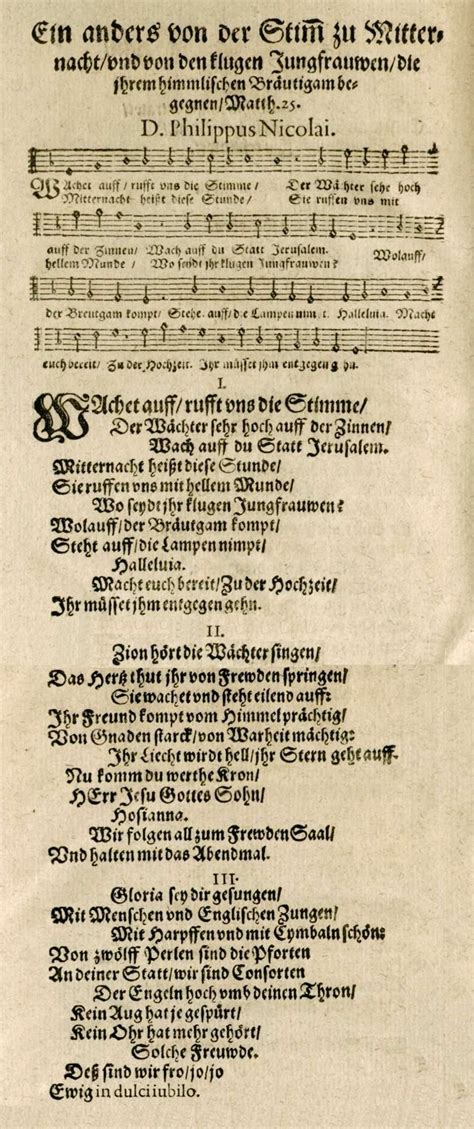 Ein anders von der Stim̅ zu Mitter-
nacht/vnd von den klugen Jungfrauwen/die
jhrem himmlischen Bräutigam be-
gegnen/Matth.25.
D. Philippus Nicolai.
WAchet auff/ rufft vns die Stimme/ Der Wächter sehr hoch
Mitternacht heißt diese Stunde/ Sie ruffen vns mit
auff der Zinnen/ Wach auff du Statt Jerusalem.
hellem Munde/ Wo seydt jhr klugen Jungfrauwen? Wolauff/
der Breutgam kompt/ Stehe auff/ die Lampen nimpt. Halleluia. Macht
euch bereit/ Zu der Hochzeit. Ihr müsset jhm entgegen
I.
WAchet auff/ rufft vns die Stimme/
Der Wächter sehr hoch auff der Zinnen/
Wach auff du Statt Jerusalem.
Mitternacht heißt diese Stunde/
Sie ruffen vns mit hellem Munde/
Wo seydt jhr klugen Jungfrauwen?
Wolauff/ der Bräutgam kompt/
Steht auff/ die Lampen nimpt/
Halleluia.
Macht euch bereit/ Zu der Hochzeit/
Ihr müsset jhm entgegen gehn.
II.
Zion hört die Wächter singen/
Das Hertz thut jhr von Frewden springen/
Sie wachet vnd steht eilend auff:
Ihr Freund kompt vom Himmel prächtig/
Von Gnaden starck/ von Warheit mächtig:
Ihr Liecht wirdt hell/ jhr Stern geht auff.
Nu komm du werthe Kron/
HErr Jesu Gottes Sohn/
Hosianna.
Wir folgen all zum Frewden Saal/
Vnd halten mit das Abendmal.
III.
Gloria sey dir gesungen/
Mit Menschen vnd Englischen Zungen/
Mit Harpffen vnd mit Cymbaln schön:
Von zwölff Perlen sind die Pforten
An deiner Statt/ wir sind Consorten
Der Engeln hoch vmb deinen Thron/
Kein Aug hat je gespürt/
Kein Ohr hat mehr gehört/
Solche Freuwde.
Deß sind wir fro/ jo/ jo
Ewig in dulci iubilo.